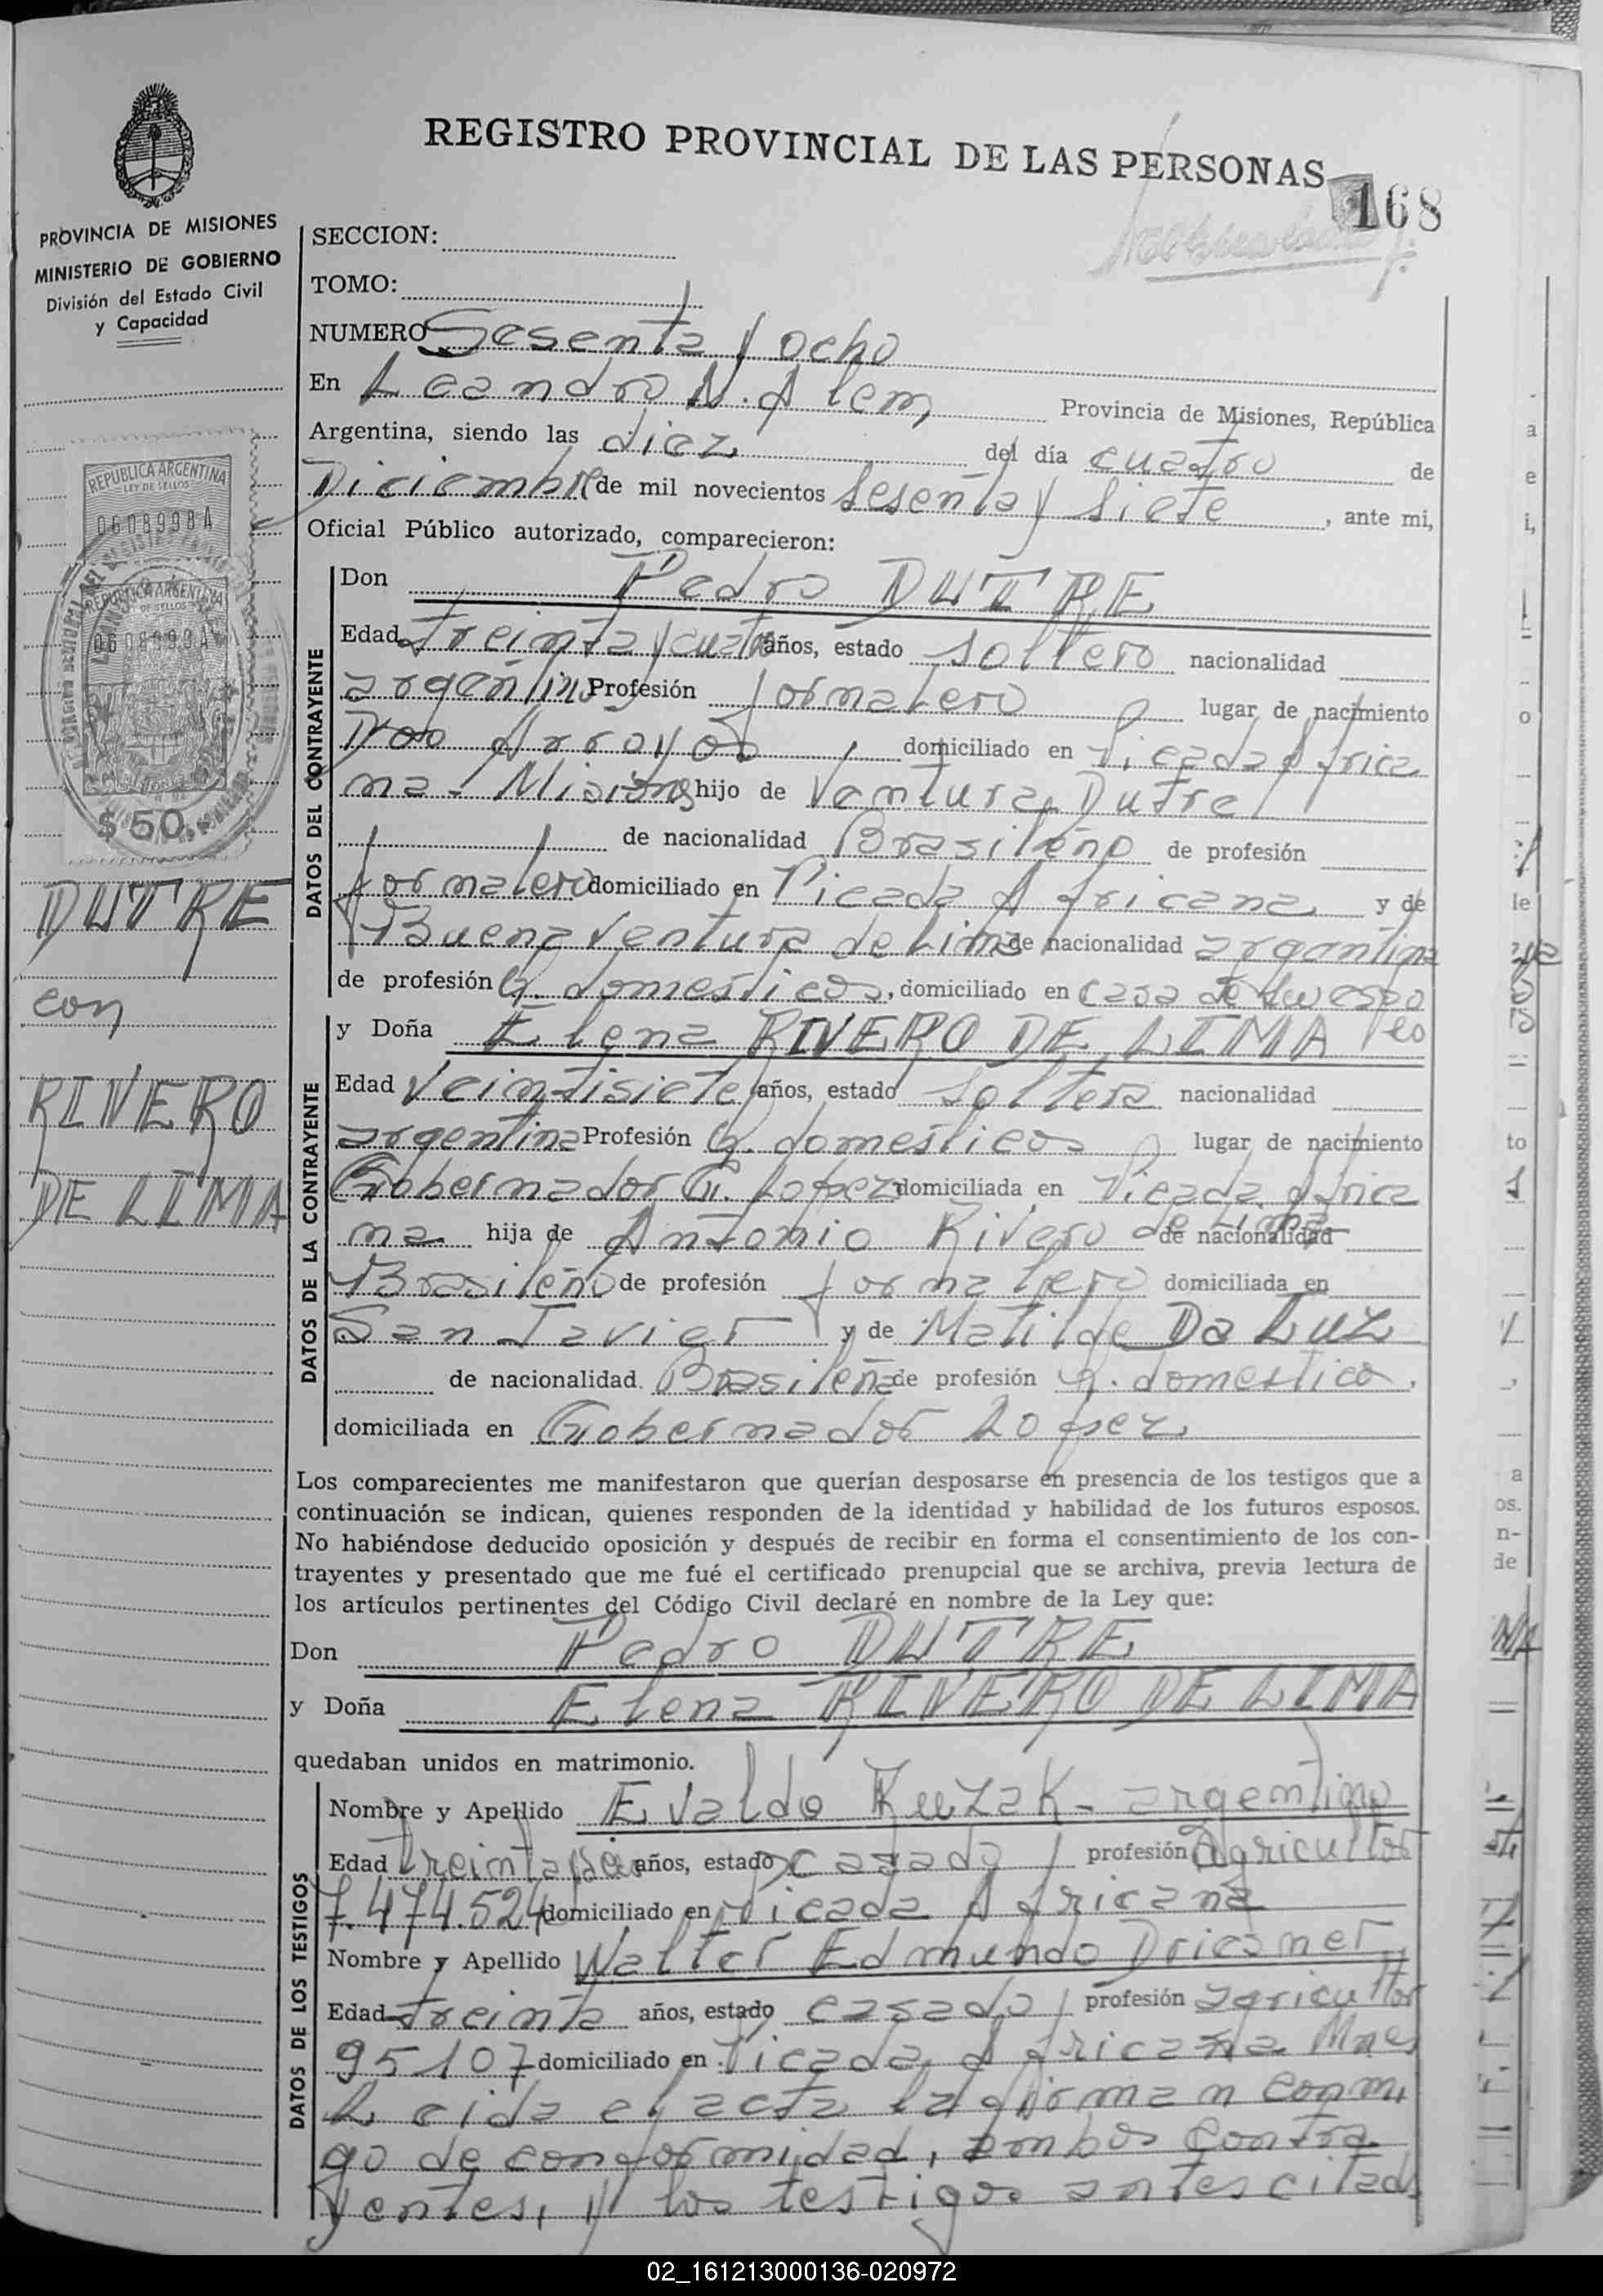 REGISTRO PROVINCIAL DE LAS PERSONAS
168
PROVINCIA DE MISIONES
MINISTERIO DE GOBIERNO
División del Estado Civil
y Capacidad
SECCION:
TOMO:
NUMERO Sesenta y ocho
En Leandro N. Alem, Provincia de Misiones, República
Argentina, siendo las diez del día cuatro de
Diciembre de mil novecientos Sesenta y Siete, ante mi,
Oficial Público autorizado, comparecieron:
REPUBLICA ARGENTINA
LEY DE SELLOS
0608998A
REPUBLICA ARGENTINA
LEY DE SELLOS
0608999A
$ 50
DUTRE
con
RIVERO
DE LIMA
DATOS DEL CONTRAYENTE
Don Pedro DUTRE
Edad treinta y cuatro años, estado soltero nacionalidad
argentino Profesión jornalero lugar de nacimiento
Dos Arroyos, domiciliado en Picada Africa
na - Misiones hijo de Ventura Dutre
de nacionalidad Brasileño de profesión
jornalero domiciliado en Picada Africana y de
Buenaventura de Lima de nacionalidad argentina
de profesión Q. domesticos, domiciliado en casa de su espo
so
DATOS DE LA CONTRAYENTE
y Doña Elena RIVERO DE LIMA
Edad Veintisiete años, estado soltera nacionalidad
argentina Profesión Q. domesticos lugar de nacimiento
Gobernador G. Lopez domiciliada en Picada Africa
na hija de Antonio Rivero de Lima de nacionalidad
Brasileño de profesión jornalero domiciliada en
San Javier y de Matilde Da Luz
de nacionalidad Brasileña de profesión Q. domestico,
domiciliada en Gobernador Lopez
Los comparecientes me manifestaron que querían desposarse en presencia de los testigos que a
continuación se indican, quienes responden de la identidad y habilidad de los futuros esposos.
No habiéndose deducido oposición y después de recibir en forma el consentimiento de los con-
trayentes y presentado que me fué el certificado prenupcial que se archiva, previa lectura de
los artículos pertinentes del Código Civil declaré en nombre de la Ley que:
Don Pedro DUTRE
y Doña Elena RIVERO DE LIMA
quedaban unidos en matrimonio.
DATOS DE LOS TESTIGOS
Nombre y Apellido Evaldo Kuzak - argentino
Edad treinta y seis años, estado casado profesión Agricultor
7.474.524 domiciliado en Picada Africana
Nombre y Apellido Walter Edmundo Driesner
Edad treinta años, estado casado profesión agricultor
95107 domiciliado en Picada Africana Mnes
Leida el acta la firman conmi
go de conformidad, ambos contra
yentes, y los testigos antes citados
02_161213000136-020972